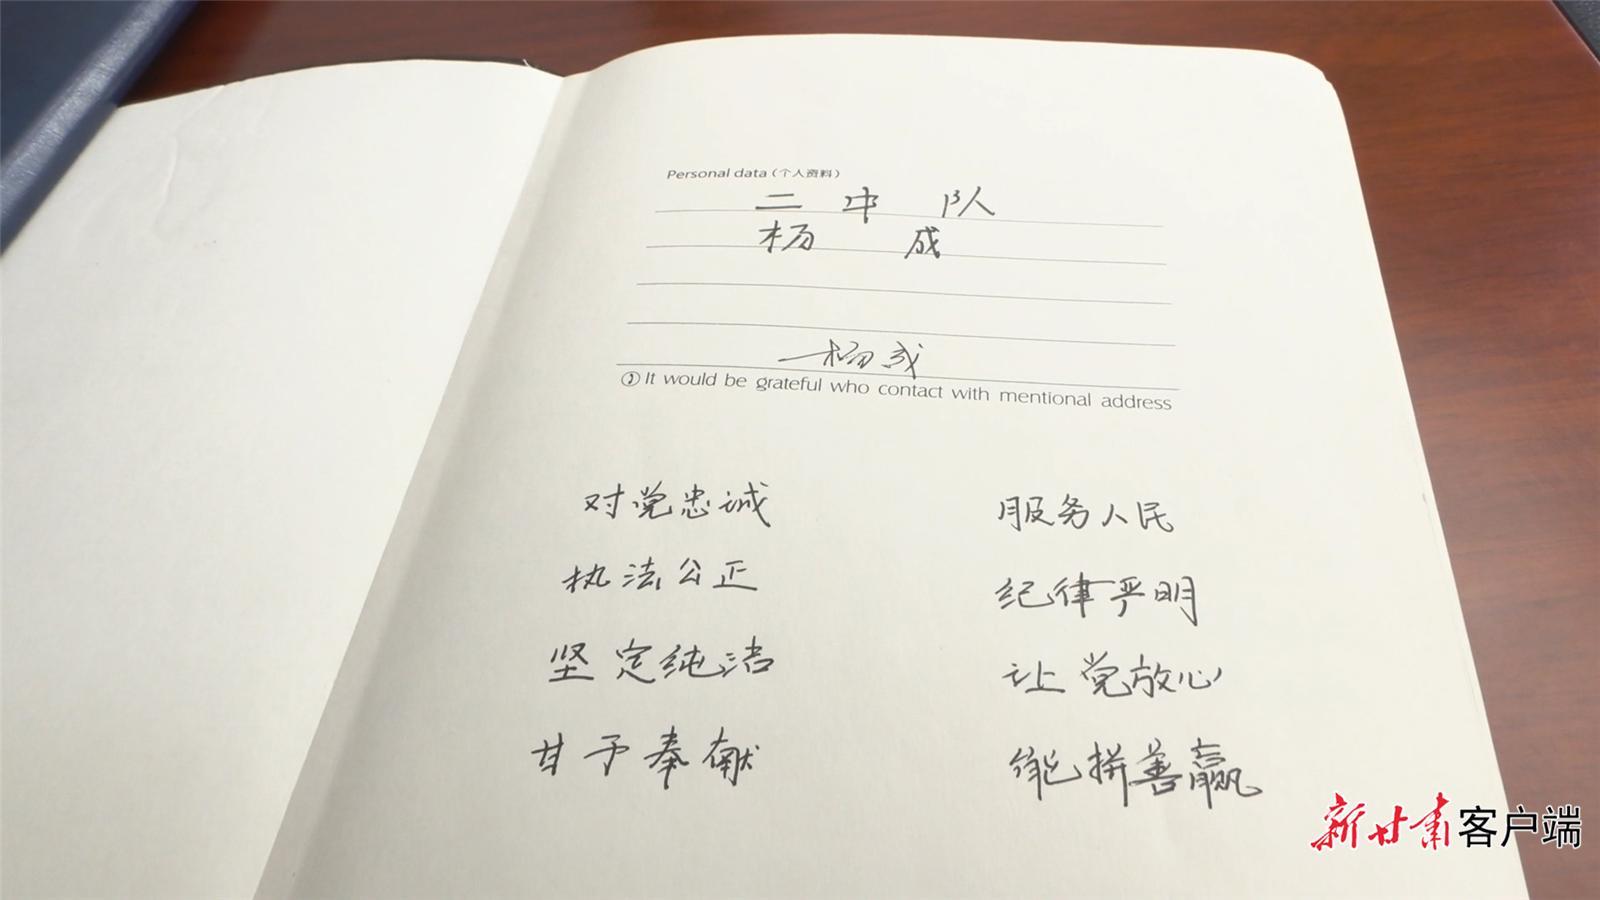 Personal data (个人资料)
二中队
杨成
杨成
It would be grateful who contact with mentional address
对党忠诚 服务人民
执法公正 纪律严明
坚定纯洁 让党放心
甘予奉献 能拼善赢
新甘肃客户端